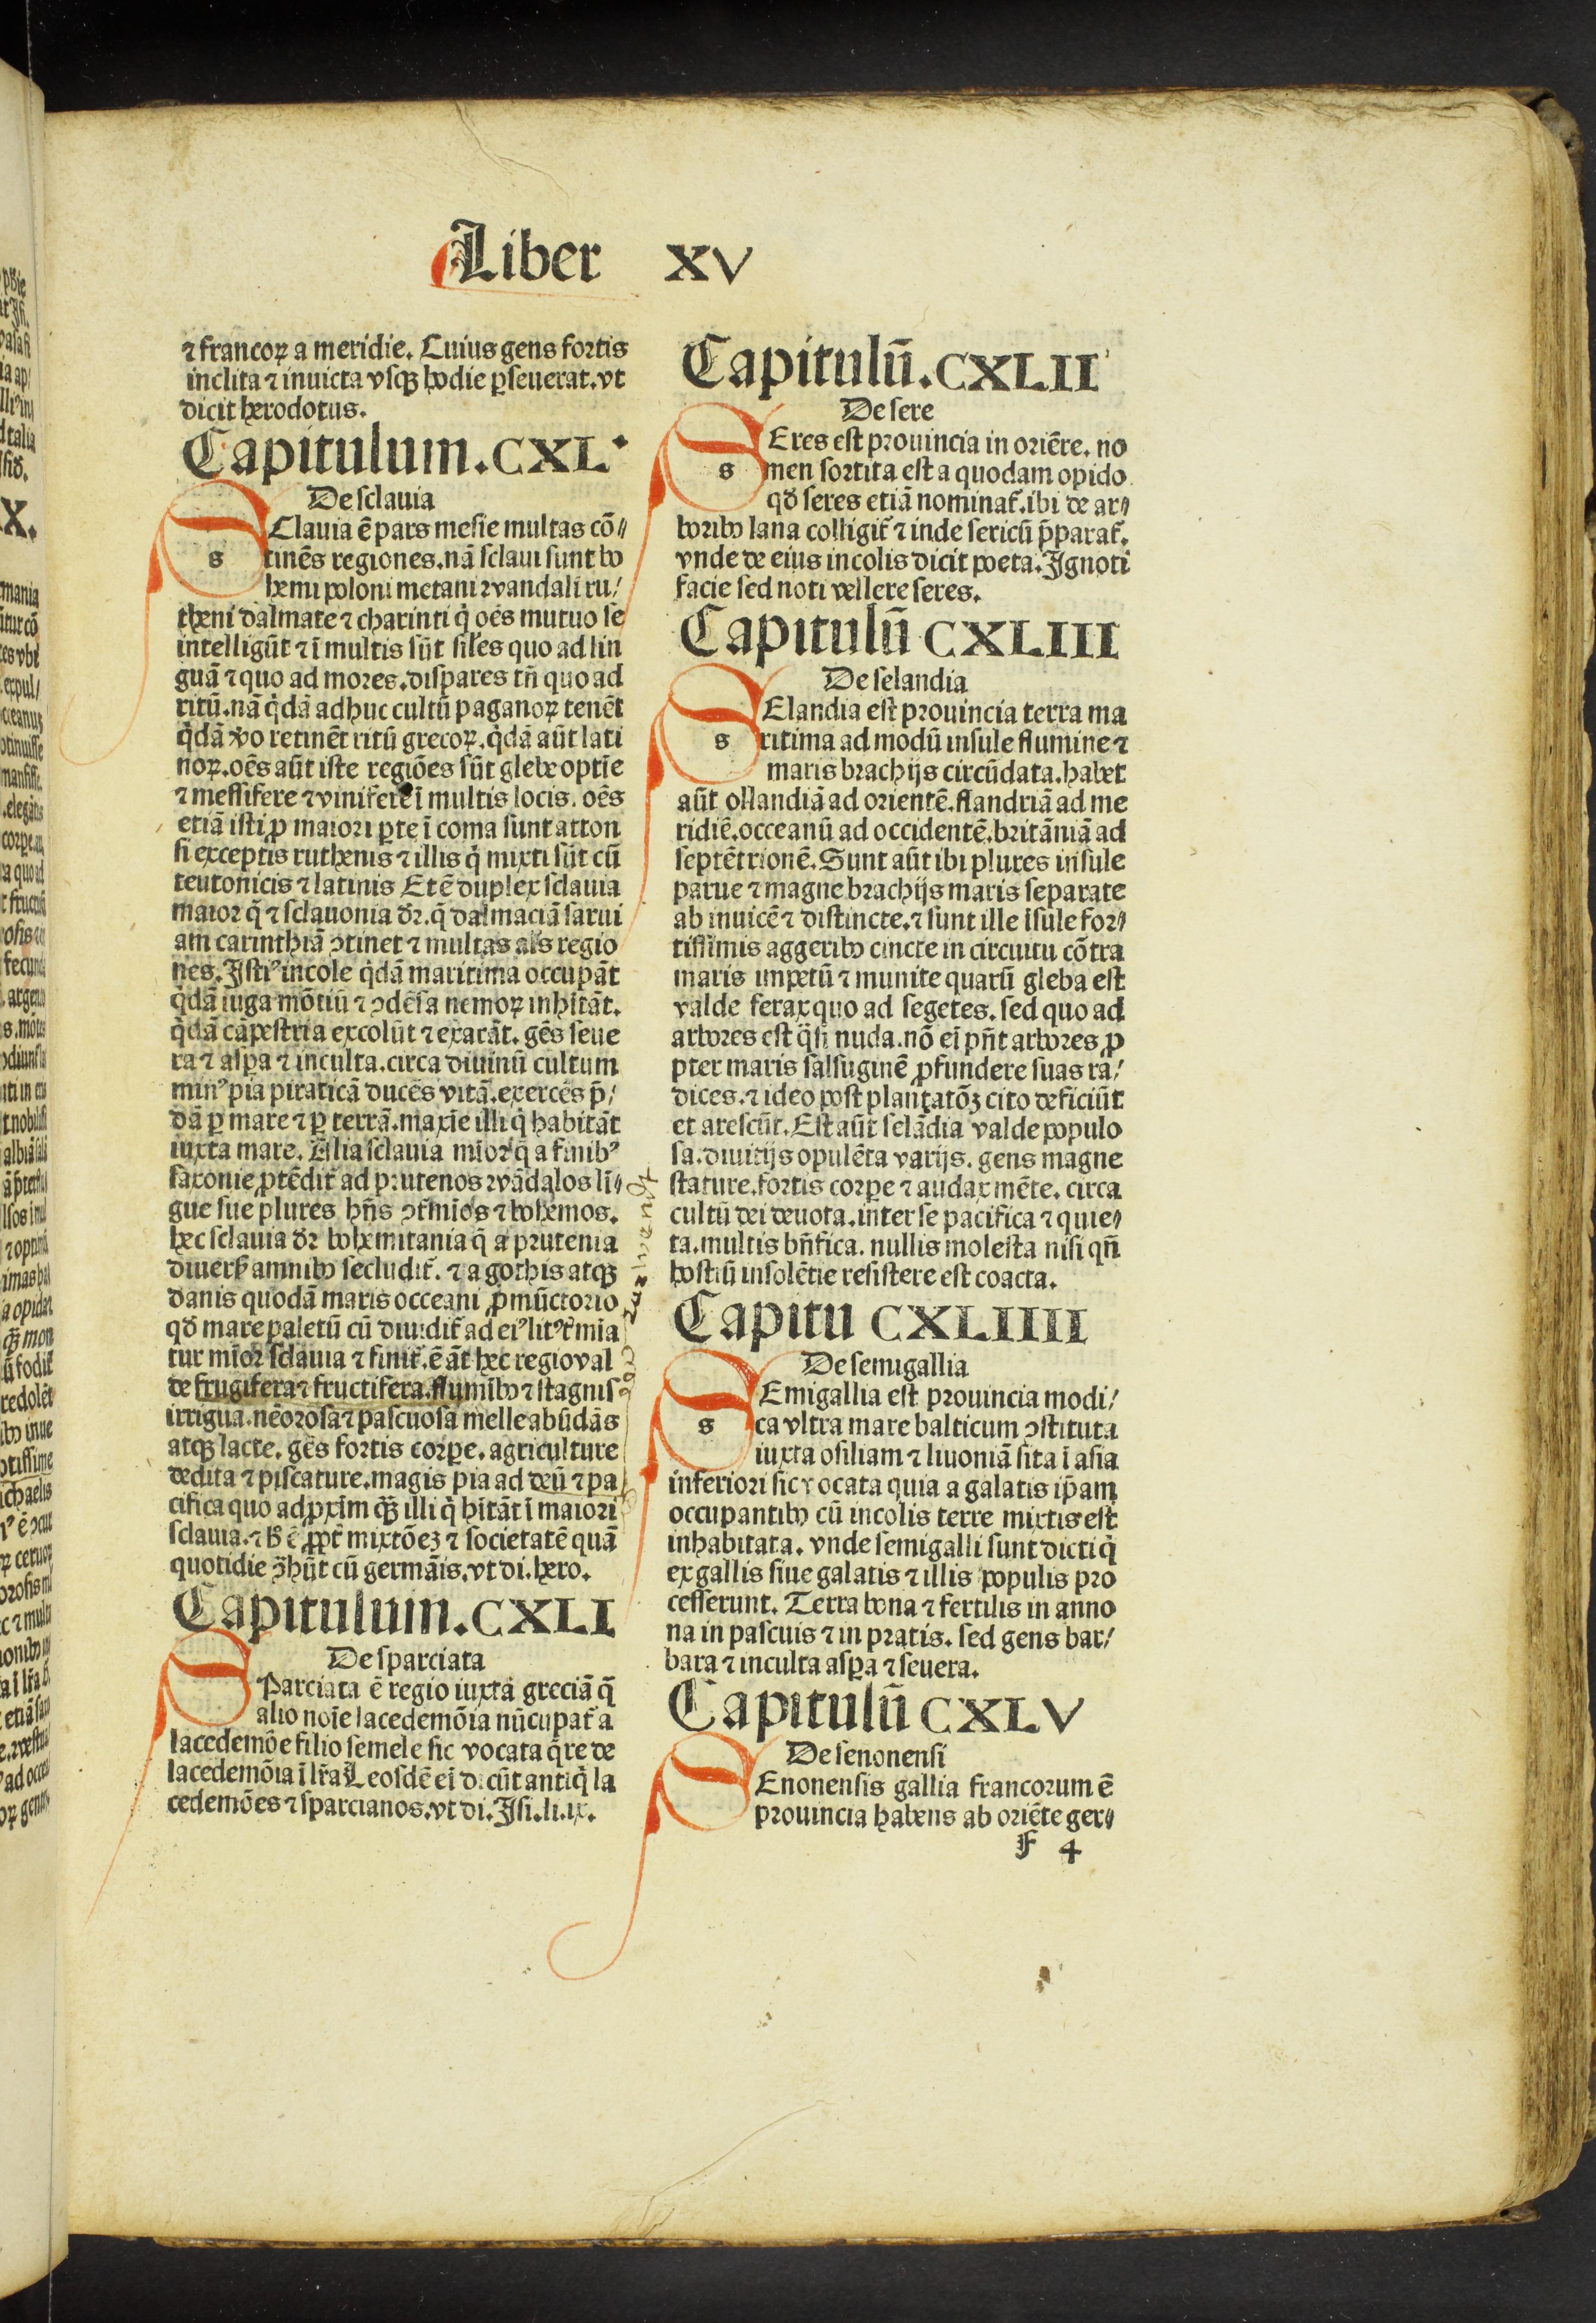 Liber XV
⁊ francoꝝ a meridie. Cuius gens fortis
inclita ⁊ inuicta vsqꝫ hodie ꝑseuerat. vt
dicit herodotus.
Capitulum. CXL.
De sclauia
s
Clauia ē pars mesie multas cō⸗
tinēs regiones. nā sclaui sunt bo
hemi poloni metani ⁊ vandali ru/
theni dalmate ⁊ charinti q̇ oēs mutuo se
intelligūt ⁊ ī multis sūt siĺes quo ad lin
guā ⁊ quo ad mores. dispares tn̄ quo ad
ritū. nā q̇dā adhuc cultū paganoꝝ tenēt
q̇dā v̄o retinēt ritū grecoꝝ. q̇dā aūt lati
noꝝ. oēs aūt iste regiōes sūt glebe optīe
⁊ messifere ⁊ vinifere ī multis locis. oēs
etiā isti ꝓ maiori ꝑte ī coma sunt atton
si exceptis ruthenis ⁊ illis q̇ mixti sūt cū
teutonicis ⁊ latinis Et ē duplex sclauia
maior q̄ ⁊ sclauonia dr̄. q̄ dalmaciā sarui
am carinthiā ↄtinet ⁊ multas aĺs regio
nes. Istiꝰ incole q̇dā maritima occupāt
q̇dā iuga mōtiū ⁊ ↄdēsa nemoꝝ inhītāt.
q̇dā cāpestria excolūt ⁊ exarāt. gēs seue
ra ⁊ asꝑa ⁊ inculta. circa diuinū cultum
minꝰ pia piraticā ducēs vitā. exercēs p̄/
dā ꝑ mare ⁊ ꝑ terrā. maxīe illi q̇ habitāt
iuxta mare. Alia sclauia mīor q̄ a finibꝰ
saxonie ꝓtēdit̄ ad prutenos ⁊ vādalos lī⸗
gue sue plures hn̄s ↄt̄mīos ⁊ bohemos.
hec sclauia dr̄ bohemitania q̄ a prutenia
diuerẜ amnibꝰ secludit̄. ⁊ a gothis atqꝫ
danis quodā maris occeani ꝓmūctorio
qd̄ mare paletū cū diuidit̄ ad eiꝰ litꝰ t̄mīa
tur mīor sclauia ⁊ finit̄. ē āt hec regio val
de frugifera ⁊ fructifera. flumībꝰ ⁊ stagnis
irrigua. nēorosa ⁊ pascuosa melle abūdās
atqꝫ lacte. gēs fortis corꝑe. agriculture
dedita ⁊ piscature. magis pia ad deū ⁊ pa
cifica quo ad ꝓxim̄ qꝫ̄ illi q̇ hītāt ī maiori
sclauia. ⁊ ƀ ē ꝓpt̄ mixtōeꝫ ⁊ societatē quā
quotidie ↄ̄hūt cū germāis. vt di. hero.
Capitulum. CXLI
De sparciata
Parciata ē regio iuxta greciā q̄
alio noīe lacedemōia nūcupat̄ a
lacedemōe filio semele sic vocata q̄re de
lacedemōia ī lr̄a L eosdē ei᷒ dicūt antiq̇ la
cedemōes ⁊ sparcianos. vt di. Isi. li. ix.
Capitulū. CXLII
De sere
s
Eres est prouincia in oriēte. no
men sortita est a quodam opido
qd̄ seres etiā nominat̄. ibi de ar⸗
boribꝰ lana colligit̄ ⁊ inde sericū p̄parat̄.
vnde de eius incolis dicit poeta. Ignoti
facie sed noti vellere seres.
Capitulū CXLIII
De selandia
s
Elandia est prouincia terra ma
ritima ad modū insule flumine ⁊
maris brachijs circūdata. habet
aūt ollandiā ad orientē. flandriā ad me
ridiē. occeanū ad occidentē. britāniā ad
septētrionē. Sunt aūt ibi plures insule
parue ⁊ magne brachijs maris separate
ab inuicē ⁊ distincte. ⁊ sunt ille īsule for⸗
tissimis aggeribꝰ cincte in circuitu cōtra
maris impetū ⁊ munite quarū gleba est
valde ferax quo ad segetes. sed quo ad
arbores est q̄si nuda. nō ei᷒ pn̄t arbores ꝓ
pter maris salsuginē ꝓfundere suas ra/
dices. ⁊ ideo post plantatōꝫ cito deficiūt
et arescūt. Est aūt selādia valde populo
sa. diuitijs opulēta varijs. gens magne
stature. fortis corꝑe ⁊ audax mēte. circa
cultū dei deuota. inter se pacifica ⁊ quie⸗
ta. multis bn̄fica. nullis molesta nisi qn̄
hostiū insolētie resistere est coacta.
Capitu CXLIIII
De semigallia
s
Emigallia est prouincia modi/
ca vltra mare balticum ↄstituta
iuxta osiliam ⁊ liuoniā sita ī asia
inferiori sic vocata quia a galatis ip̄am
occupantibꝰ cū incolis terre mixtis est
inhabitata. vnde semigalli sunt dicti q̇
ex gallis siue galatis ⁊ illis populis pro
cesserunt. Terra bona ⁊ fertilis in anno
na in pascuis ⁊ in pratis. sed gens bar/
bara ⁊ inculta asꝑa ⁊ seuera.
Capitulū CXLV
De senonensi
Enonensis gallia francorum ē
prouincia habens ab oriēte ger⸗
F 4